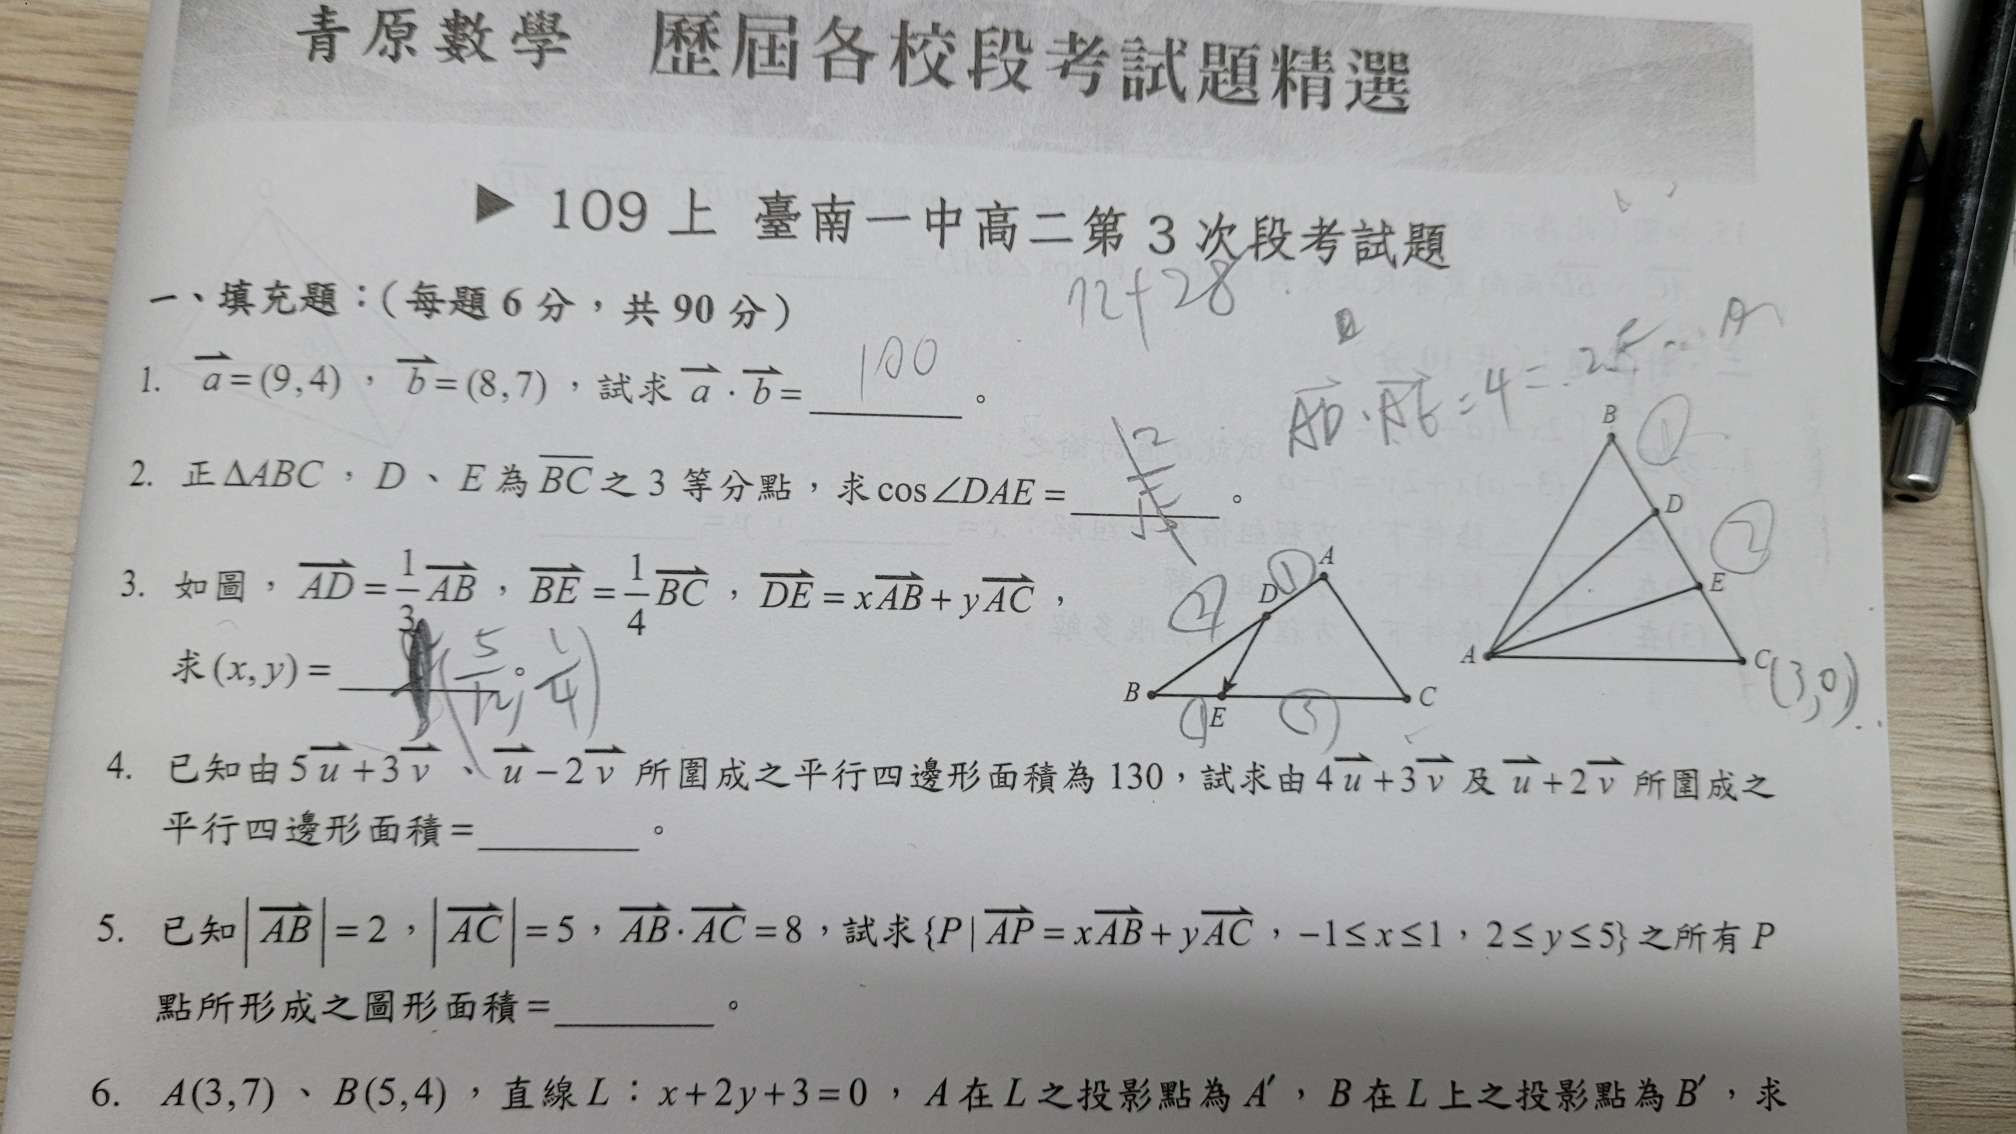 青原數學 歷屆各校段考試題精選
▶ 109 上 臺南一中高二第 3 次段考試題
72+28
一、填充題：(每題 6 分，共 90 分)
1. a=(9,4)，b=(8,7)，試求 a·b= 100 。
AD·AE=4=
2. 正ΔABC，D、E 為 BC 之 3 等分點，求 cos∠DAE= 。
B ①
D
② E
A C (3,0)
3. 如圖，AD=1/3 AB，BE=1/4 BC，DE=xAB+yAC，
求(x,y)= (5/12, 1/4) 。
A
D ①
②
B E C
① ③
4. 已知由 5u+3v、u−2v 所圍成之平行四邊形面積為 130，試求由 4u+3v 及 u+2v 所圍成之
平行四邊形面積= 。
5. 已知|AB|=2，|AC|=5，AB·AC=8，試求{P|AP=xAB+yAC，−1≤x≤1，2≤y≤5}之所有 P
點所形成之圖形面積= 。
6. A(3,7)、B(5,4)，直線 L：x+2y+3=0，A 在 L 之投影點為 A′，B 在 L 上之投影點為 B′，求